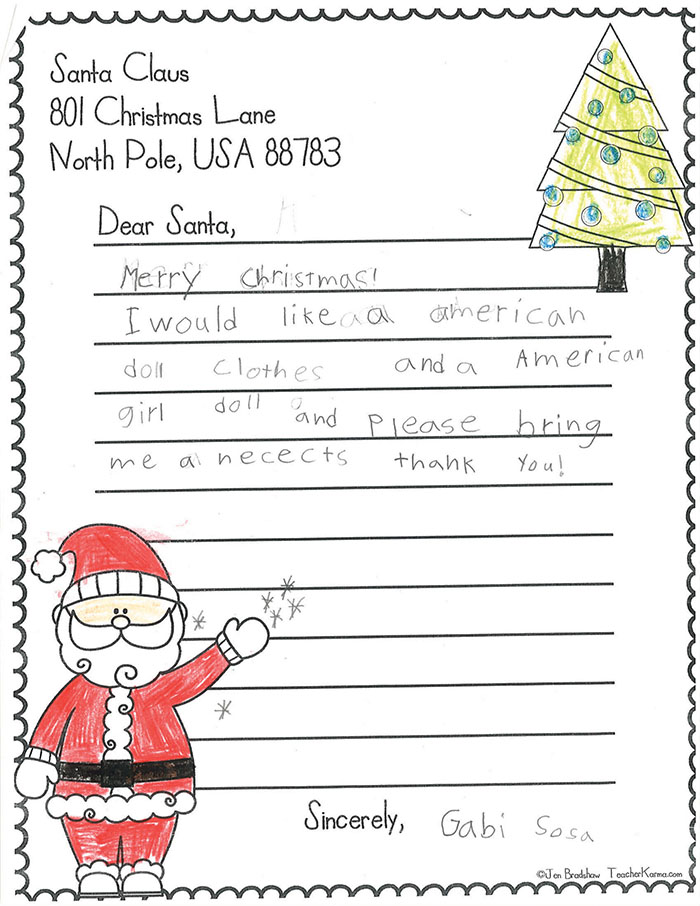 Santa Claus
801 Christmas Lane
North Pole, USA 88783
Dear Santa,
Merry Christmas!
I would like a american
doll clothes and a American
girl doll and please bring
me a necects thank you!
Sincerely, Gabi Sosa
©Jen Bradshaw TeacherKarma.com